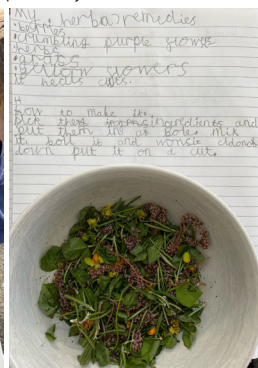 My herbal remedies
•berries
•crumbling purple flowers
herbs
•grass
•yellow flowers
it heals cuts.
how to make it.
Pick these ingrdients and
put them in a bole. Mik
it, boll it and wonsit cldond
down put it on a cut.